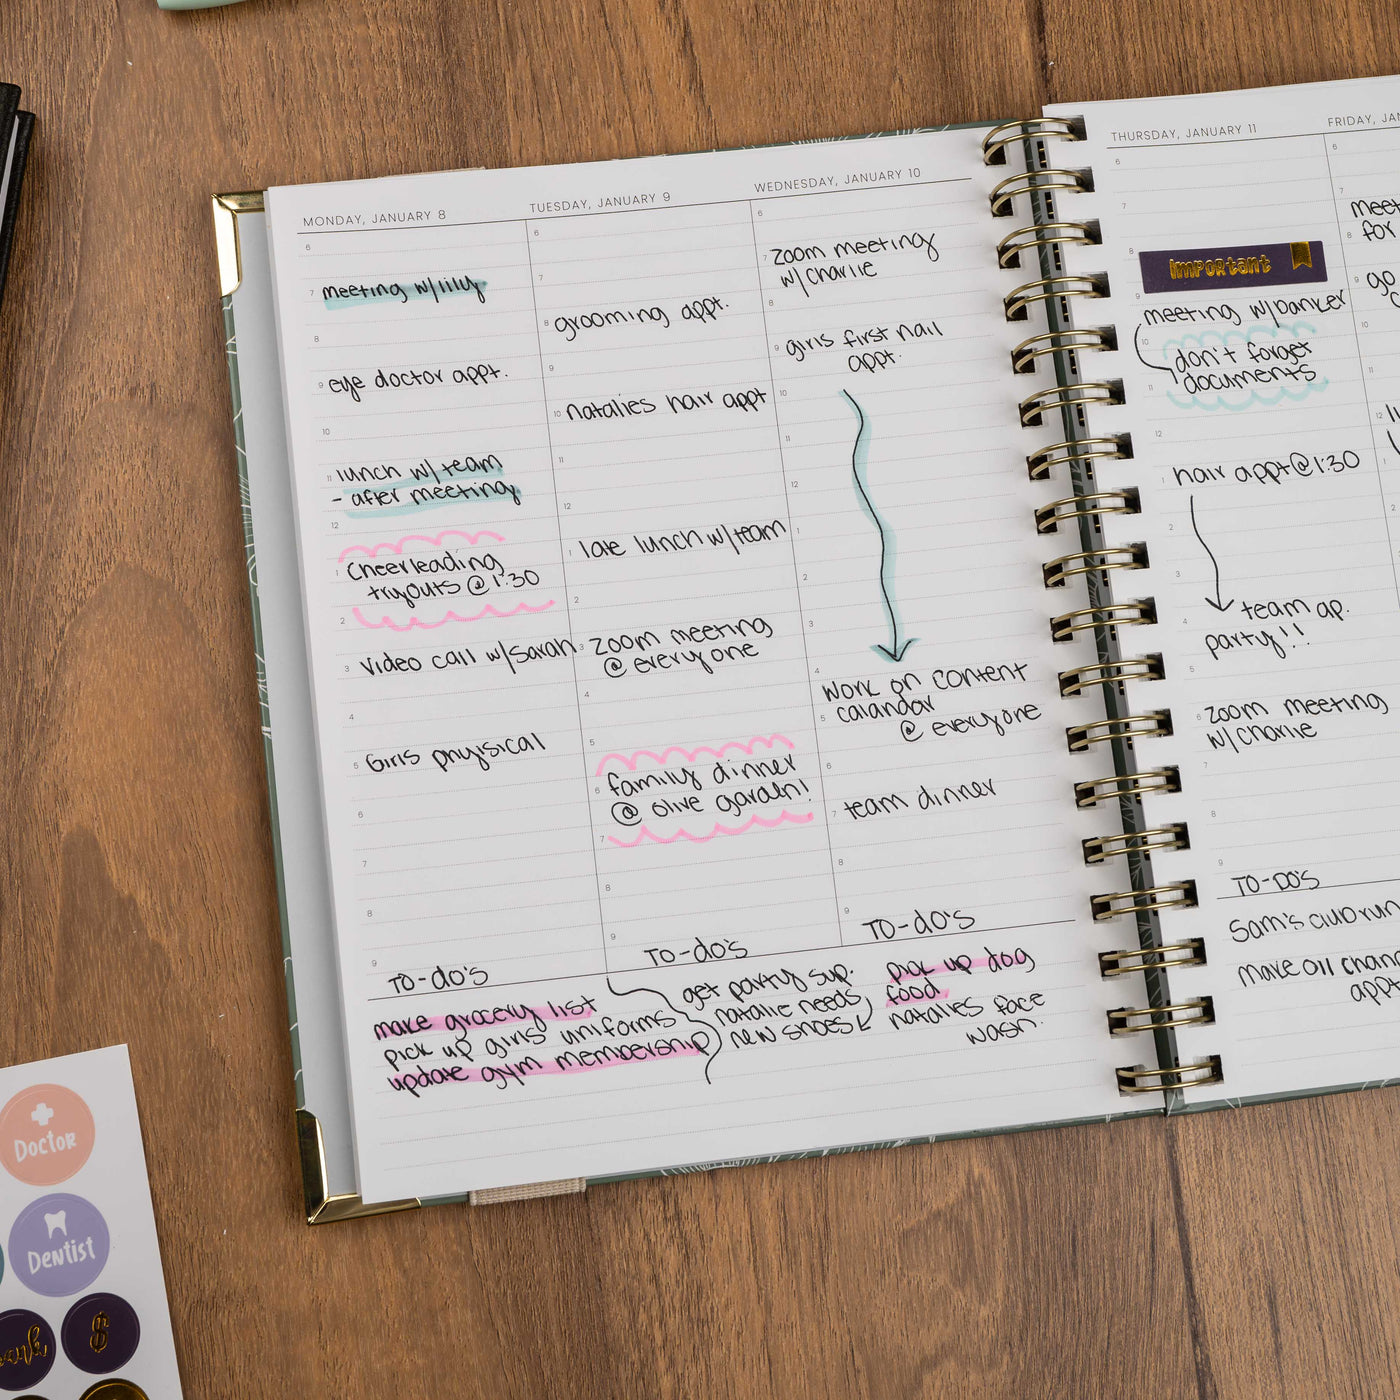 MONDAY, JANUARY 8
6
7 meeting w/lily
8
9 eye doctor appt.
10
11 lunch w/ team
- after meeting
12
1 Cheerleading
tryouts @ 1:30
2
3 Video call w/Sarah
4
5 Girls phyisical
6
7
8
9
TO-do's
make grocery list
pick up girls uniforms
update gym membership
TUESDAY, JANUARY 9
6
7
8 grooming appt.
9
10 natalies hair appt
11
12
1 late lunch w/team
2
3 Zoom meeting
@ everyone
4
5
6 family dinner
@ olive garden!
7
8
9
TO-do's
get party sup.
natalie needs
new shoes
WEDNESDAY, JANUARY 10
6
7 Zoom meeting
w/ Charlie
8
9 girls first nail
appt.
10
11
12
1
2
3
4
work on content
5 calandar
@ everyone
6
7 team dinner
8
9
TO-do's
pick up dog
food
natalies face
wash.
THURSDAY, JANUARY 11
6
7
8
important
9
meeting w/banker
10 don't forget
11 documents
12
1 hair appt @ 1:30
2
3
4 team ap.
party!!
5
6 Zoom meeting
w/ Charlie
7
8
9
TO-DO'S
Sam's club run
make oil chan
appt
FRIDAY, JAN
6
7
meet
8 for
9 go
10
12
1
2
Doctor
Dentist
$